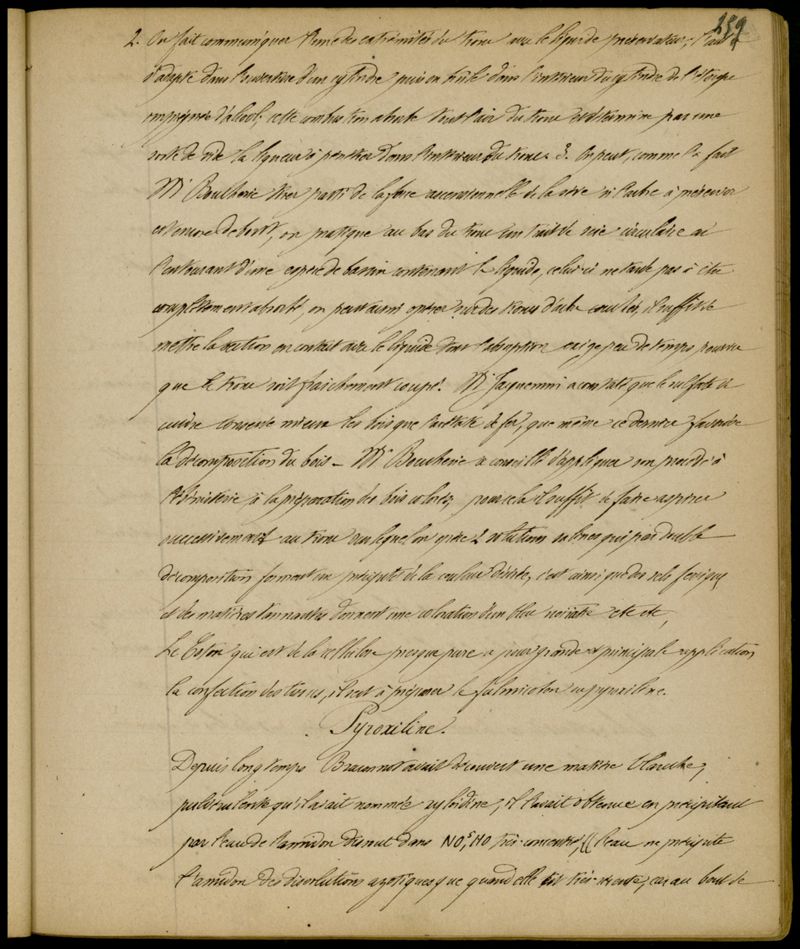 259
2. On fait communiquer l'une des extrémités du tronc avec le liquide préservateur, l'autre
s'adapte dans l'ouverture d'un cylindre puis on brûle dans l'intérieur du cylindre de l'étoupe
imprégnée d'alcool; cette combustion absorbe tout l'air du tronc et détermine par une
sorte de vide la liqueur à pénétrer dans l'intérieur du tronc. 3. On peut, comme l'a fait
Mr Boucherie tirer parti de la force ascensionnelle de la sève si l'arbre à préserver
est encore debout, on pratique au bas du tronc un trait de scie circulaire
l'entourant d'une espèce de bassin contenant le liquide, celui-ci ne tarde pas à être
complètement absorbé, on peut aussi opérer sur des troncs d'arbre couchés, il suffit de
mettre la section en contact avec le liquide dont l'absorption exige peu de temps pourvu
que le tronc soit fraîchement coupé. Mr Jacquemin a constaté que le sulfate de
cuivre conserve mieux les bois que l'acétate de fer, que même ce dernier favorise
la décomposition du bois — Mr Boucherie a conseillé d'appliquer son procédé à
l'ébénisterie à la préparation des bois colorés, pour cela il suffit de faire aspirer
successivement au tronc sur lequel on opère 2 solutions salines qui par double
décomposition forment un précipité de la couleur désirée, c'est ainsi que des sels ferriques
et des matières tannantes donnent une coloration d'un bleu noirâtre etc etc,
Le Coton qui est de la cellulose presque pure a pour grande et principale application
la confection des tissus, il sert à préparer le fulmicoton ou pyroxiline.
Pyroxiline.
Depuis longtemps Braconnot avait découvert une matière blanche,
pulvérulente qu'il avait nommée xyloïdine, il l'avait obtenue en précipitant
par l'eau de l'amidon dissout dans NO⁵,HO très concentré, (l'eau ne précipite
l'amidon des dissolutions azotiques que quand elle est très récente, car au bout de